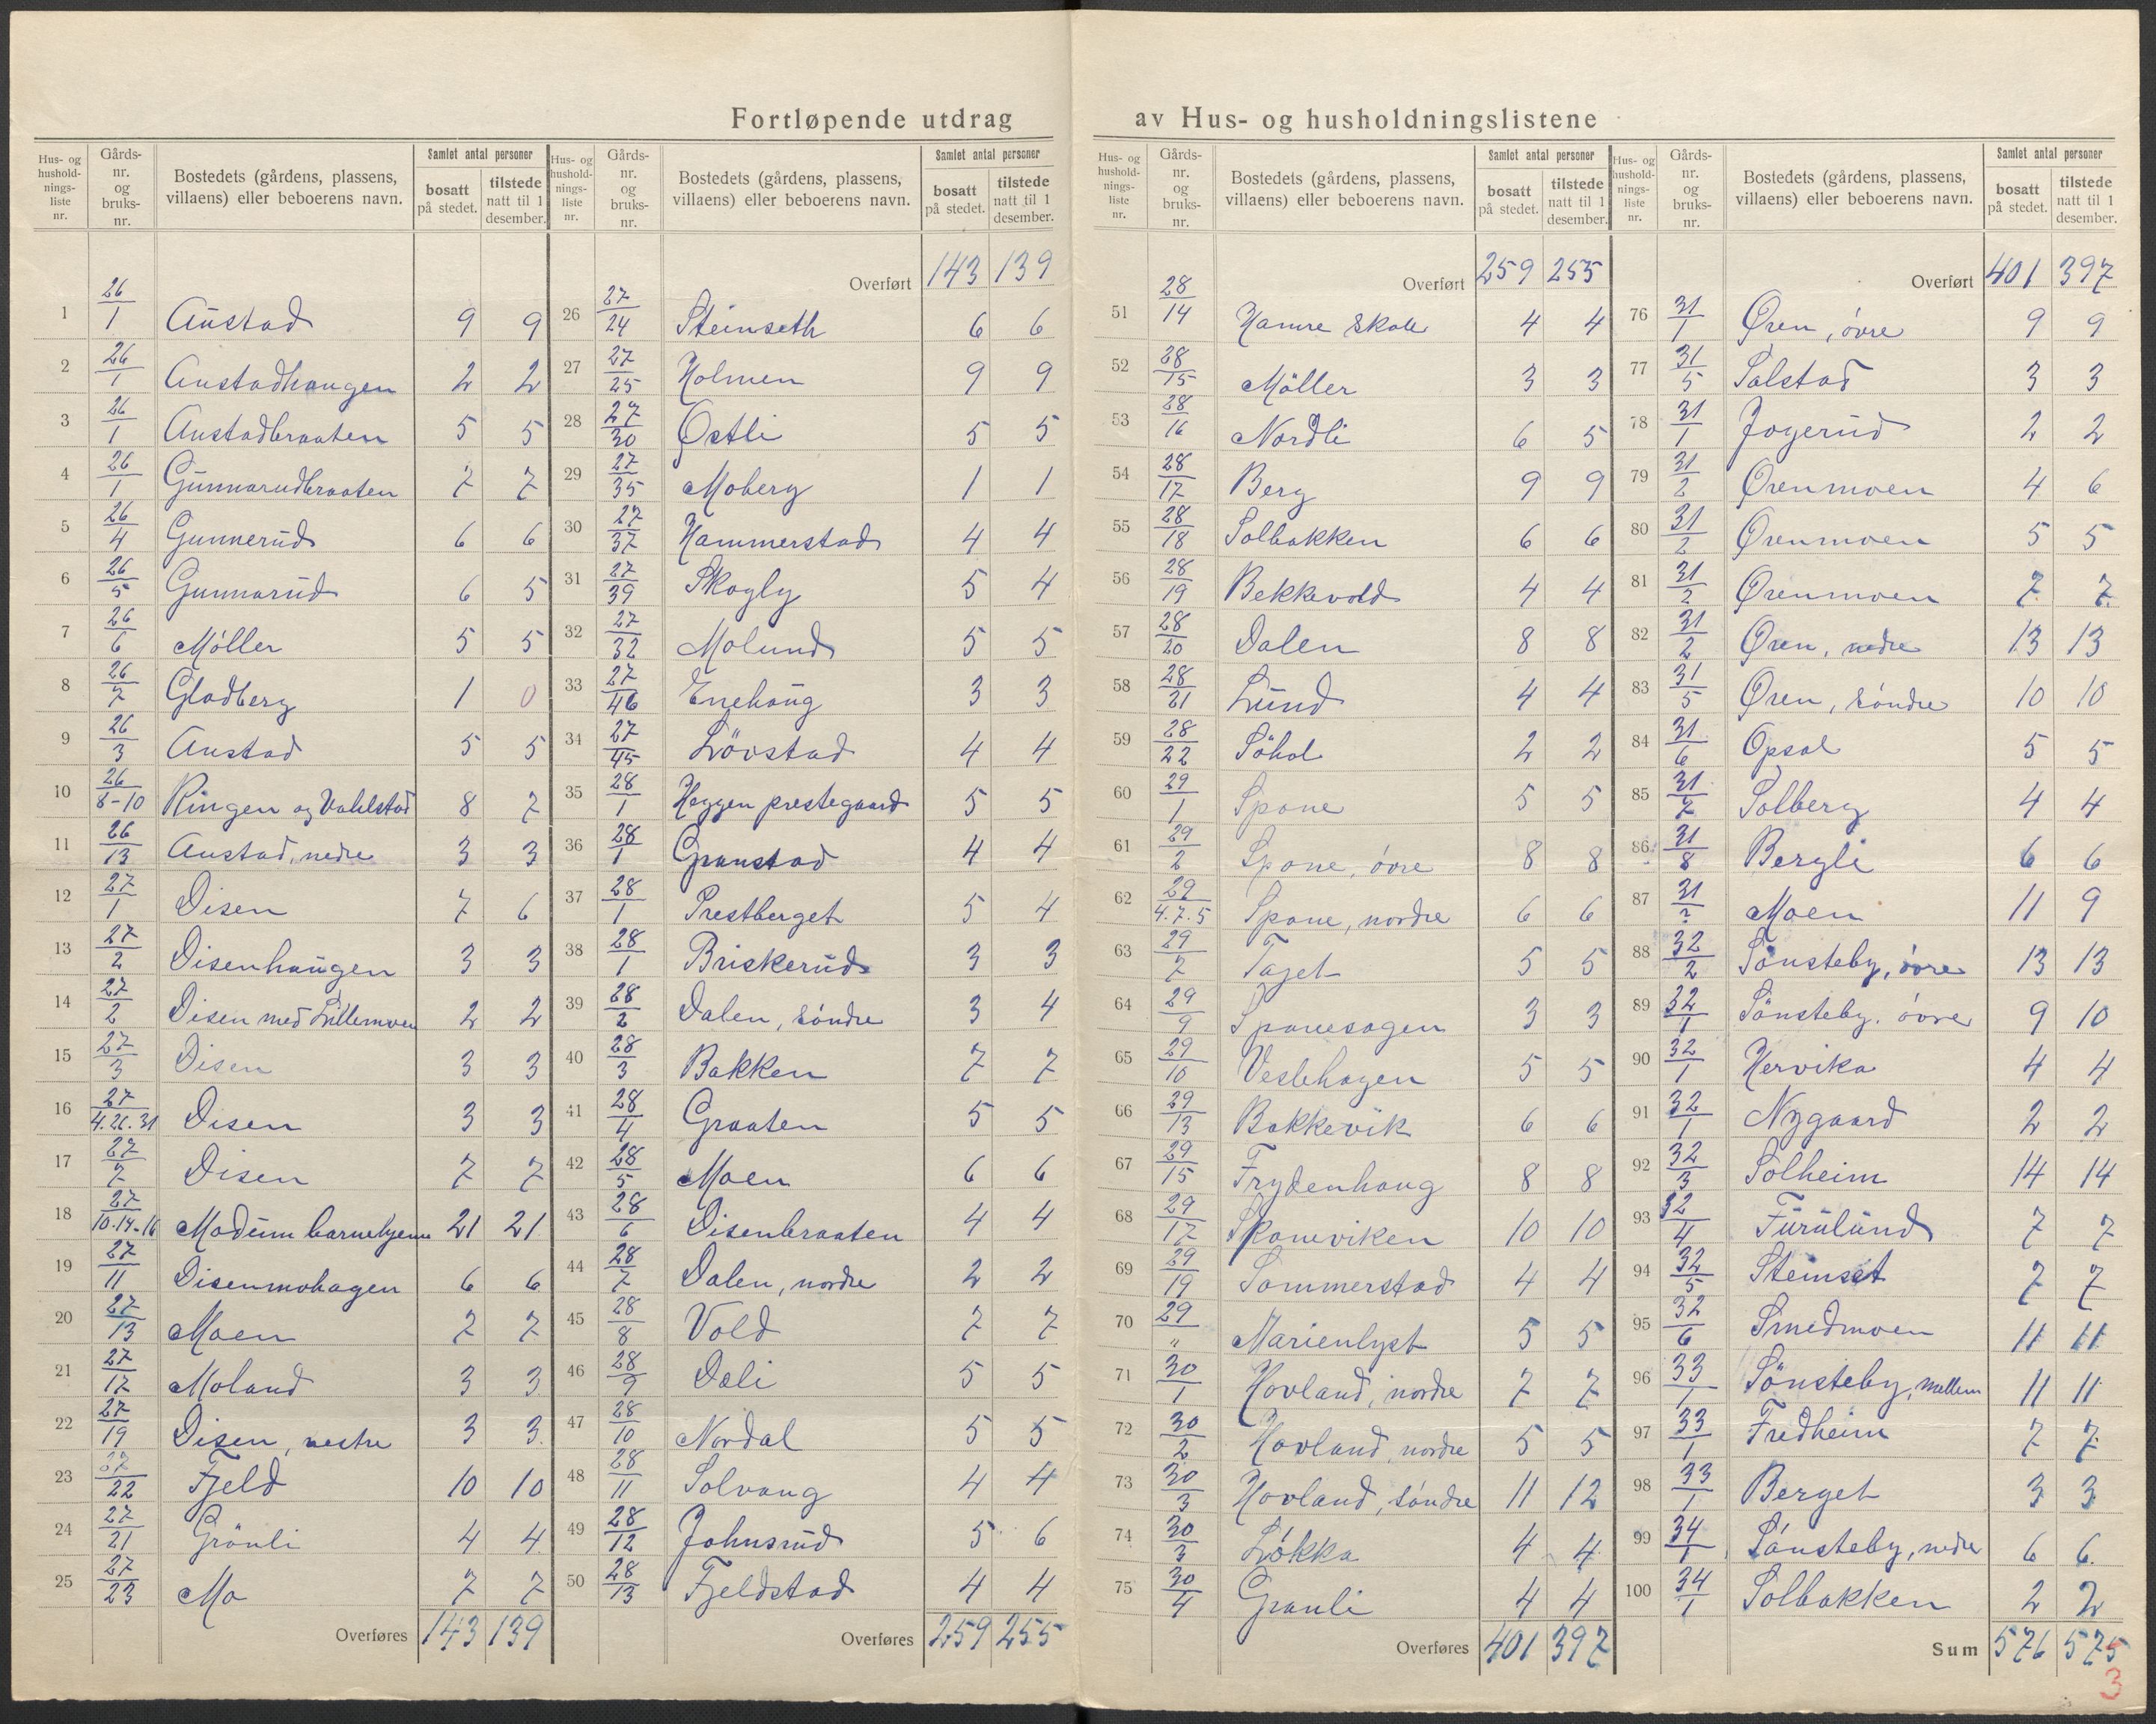 Fortløpende utdrag av Hus- og husholdningslistene
Hus- og husholdningsliste nr. | Gårdsnr. og bruksnr. | Bostedets (gårdens, plassens, villaens) eller beboerens navn. | Samlet antal personer bosatt på stedet. | tilstede natt til 1 desember.
1 26/1 Austad 9 9
2 26/1 Austadhaugen 2 2
3 26/1 Austadbraaten 5 5
4 26/1 Gunnarudbraaten 7 7
5 26/4 Gunnerud 6 6
6 26/5 Gunnarud 6 5
7 26/6 Möller 5 5
8 26/7 Gladberg 1 0
9 26/3 Austad 5 5
10 26/8-10 Ringen og Vahlstad 8 7
11 26/13 Austad, nedre 3 3
12 27/1 Disen 7 6
13 27/2 Disenhaugen 3 3
14 27/2 Disen med Lillemoen 2 2
15 27/3 Disen 3 3
16 27/4.26.31 Disen 3 3
17 27/7 Disen 7 7
18 27/10-14-16 Modum barnehjem 21 21
19 27/11 Disenmohagen 6 6
20 27/13 Moen 7 7
21 27/17 Moland 3 3
22 27/19 Disen, vestre 3 3
23 27/22 Fjeld 10 10
24 27/21 Grönli 4 4
25 27/23 Mo 7 7
Overføres 143 139
Overført 143 139
26 27/24 Steinseth 6 6
27 27/25 Holmen 9 9
28 27/30 Östli 5 5
29 27/35 Moberg 1 1
30 27/37 Hammerstad 4 4
31 27/39 Skogly 5 4
32 27/32 Molund 5 5
33 27/46 Enehaug 3 3
34 27/45 Lövstad 4 4
35 28/1 Heggen prestegaard 5 5
36 28/1 Granstad 4 4
37 28/1 Prestberget 5 4
38 28/1 Briskerud 3 3
39 28/2 Dalen, söndre 3 4
40 28/3 Bakken 7 7
41 28/4 Graaten 5 5
42 28/5 Moen 6 6
43 28/6 Disenbraaten 4 4
44 28/7 Dalen, nordre 2 2
45 28/8 Vold 7 7
46 28/9 Dali 5 5
47 28/10 Nordal 5 5
48 28/11 Solvang 4 4
49 28/12 Johnsrud 5 6
50 28/13 Fjeldstad 4 4
Overføres 259 255
Overført 259 255
51 28/14 Hamre skole 4 4
52 28/15 Möller 3 3
53 28/16 Nordli 6 5
54 28/17 Berg 9 9
55 28/18 Solbakken 6 6
56 28/19 Bekkevold 4 4
57 28/20 Dalen 8 8
58 28/21 Lund 4 4
59 28/22 Söhol 2 2
60 29/1 Spone 5 5
61 29/2 Spone, övre 8 8
62 29/4.7.5 Spone, nordre 6 6
63 29/7 Taget 5 5
64 29/9 Sponesagen 3 3
65 29/10 Veslehagen 5 5
66 29/13 Bakkevik 6 6
67 29/15 Frydenhaug 8 8
68 29/17 Sponeviken 10 10
69 29/19 Sommerstad 4 4
70 29/" Marienlyst 5 5
71 30/1 Hovland, nordre 7 7
72 30/2 Hovland, nordre 5 5
73 30/3 Hovland, söndre 11 12
74 30/3 Lökka 4 4
75 30/4 Granli 4 4
Overføres 401 397
Overført 401 397
76 31/1 Øren, övre 9 9
77 31/5 Solstad 3 3
78 31/1 Jogerud 2 2
79 31/2 Ørenmoen 4 6
80 31/2 Ørenmoen 5 5
81 31/2 Ørenmoen 7 7
82 31/2 Øren, nedre 13 13
83 31/5 Øren, söndre 10 10
84 31/6 Opsal 5 5
85 31/7 Solberg 4 4
86 31/8 Bergli 6 6
87 31/? Moen 11 9
88 32/2 Sönsteby, övre 13 13
89 32/1 Sönsteby, övre 9 10
90 32/1 Hervika 4 4
91 32/1 Nygaard 2 2
92 32/3 Solheim 14 14
93 32/4 Furulund 7 7
94 32/5 Steinset 7 7
95 32/6 Smedmoen 11 11
96 33/1 Sönsteby, mellem 11 11
97 33/1 Fredheim 7 7
98 33/1 Berget 3 3
99 34/1 Sönsteby, nedre 6 6
100 34/1 Solbakken 2 2
Sum 576 575
3